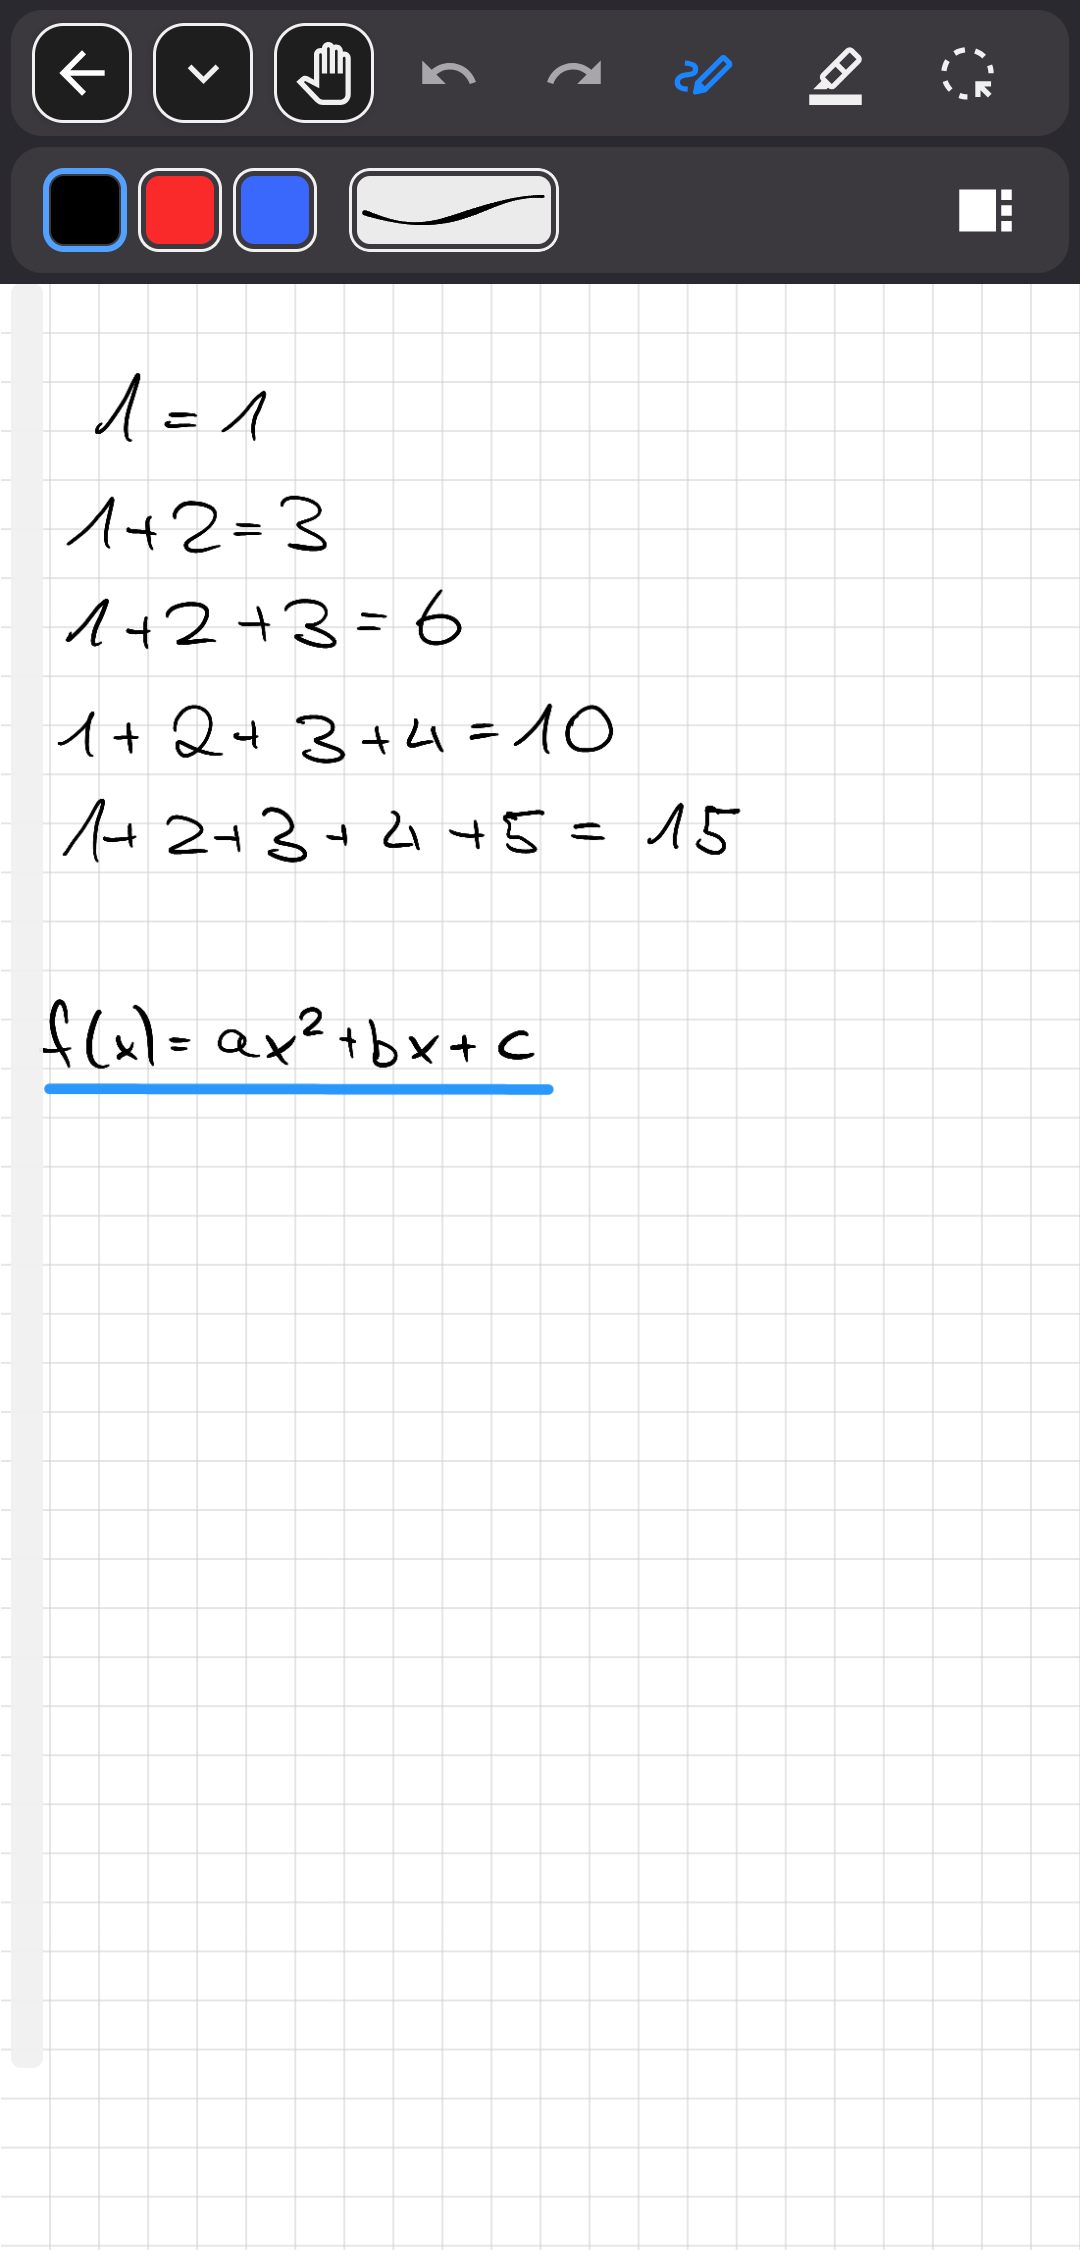 1 = 1
1+2=3
1+2+3=6
1+2+3+4=10
1+2+3+4+5=15
f(x)=ax²+bx+c